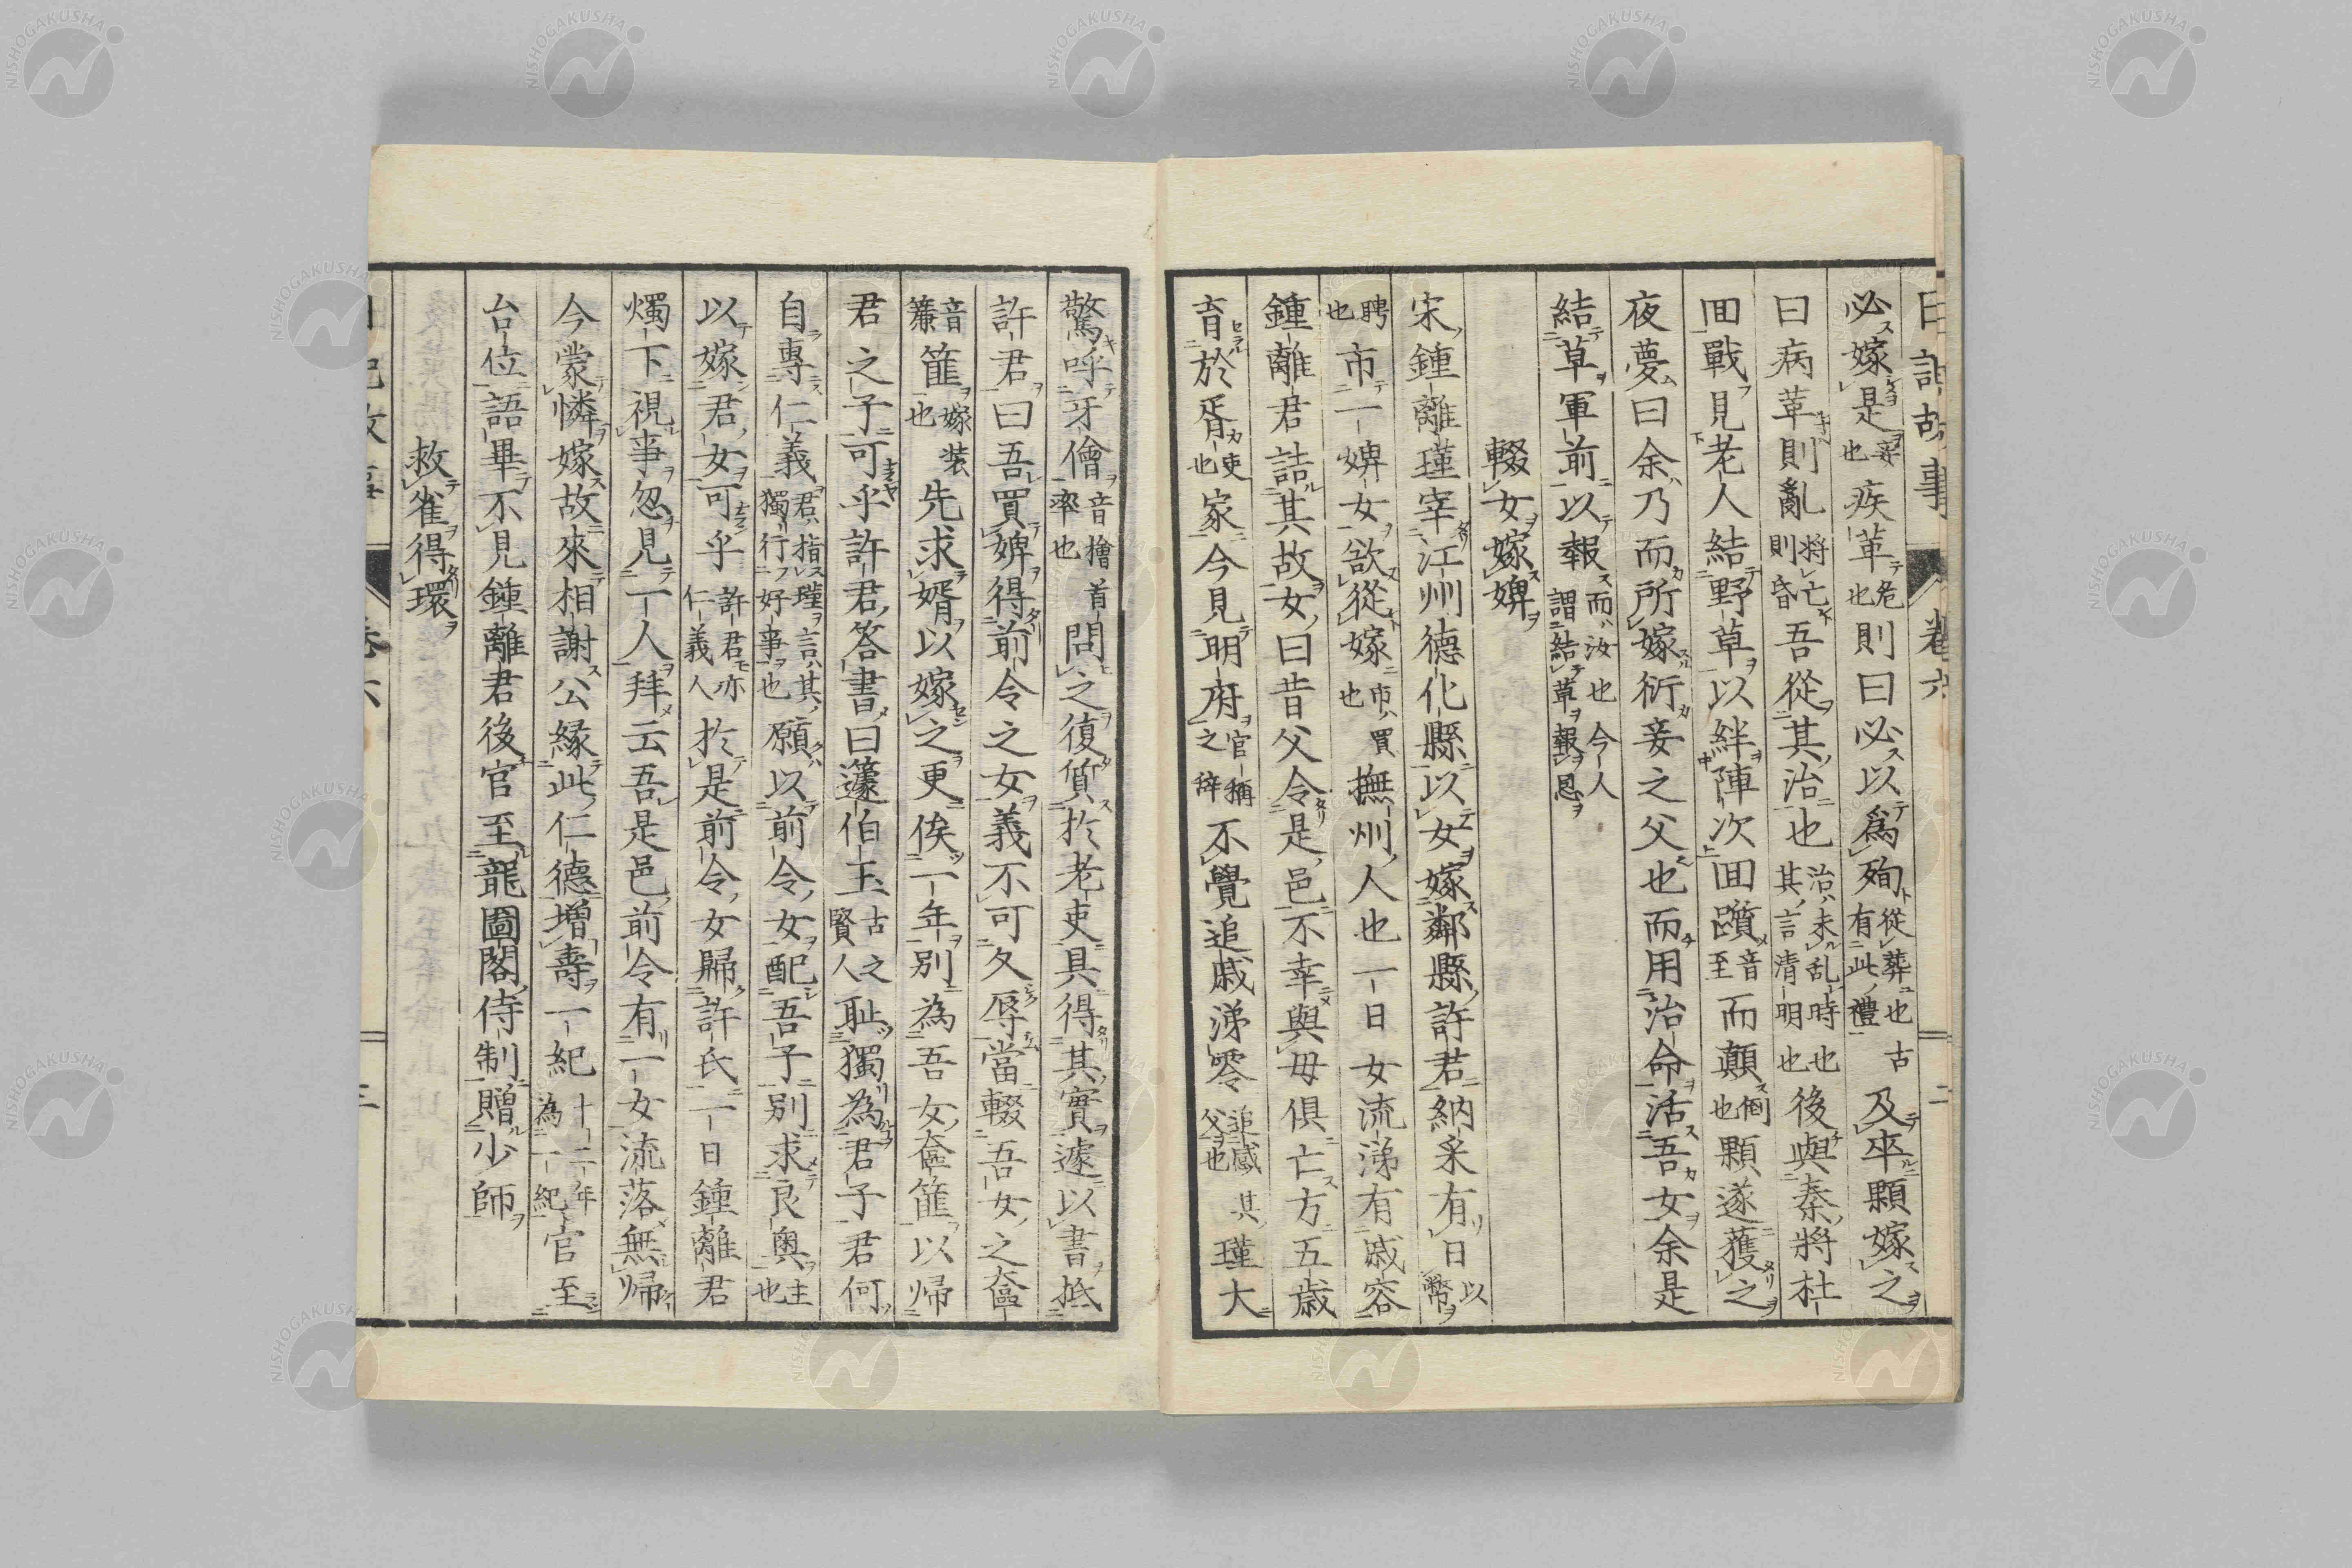 日記故事 卷六 二
必嫁是妾也疾革危也則曰必以爲殉從葬也古有此禮及卒顆嫁之
曰病革則亂將亡則昏吾從其治也治未乱時其言清明也後與秦將杜
囬戰見老人結野草以絆陣次囬躓音至而顛倒也顆遂獲之
夜夢曰余乃而所嫁衍妾之父也而用治命活吾女余是
結草軍前以報而汝也今人謂結草報恩
輟女嫁婢
宋鍾離瑾宰江州德化縣以女嫁鄰縣許君納采有日以幣
聘也市一婢女欲從嫁市買也撫州人也一日女流涕有戚容
鍾離君詰其故女曰昔父令是邑不幸與母俱亡方五歲
育於胥吏也家今見明府官稱之辞不覺追戚涕零追感其父也瑾大
驚呼牙儈音檜首率也問之復質於老吏具得其實遽以書抵
許君曰吾買婢得前令之女義不可久辱當輟吾女之奩
音簾篚嫁装也先求婿以嫁之更俟一年別為吾女奩篚以帰
君之子可乎許君答書曰蘧伯玉古之賢人耻獨為君子君何
自專仁義君指瑾言其獨行好事也願以前令女配吾子別求良奥主也
以嫁君女可乎許君亦仁義人於是前令女歸許氏一日鍾離君
燭下視事忽見一人拜云吾是邑前令有一女流落無帰
今蒙憐嫁故來相謝公緣此仁德増壽一紀十二年為一紀官至
台位語畢不見鍾離君後官至龍圖閣侍制贈少師
救雀得環
日記故事 卷六 三